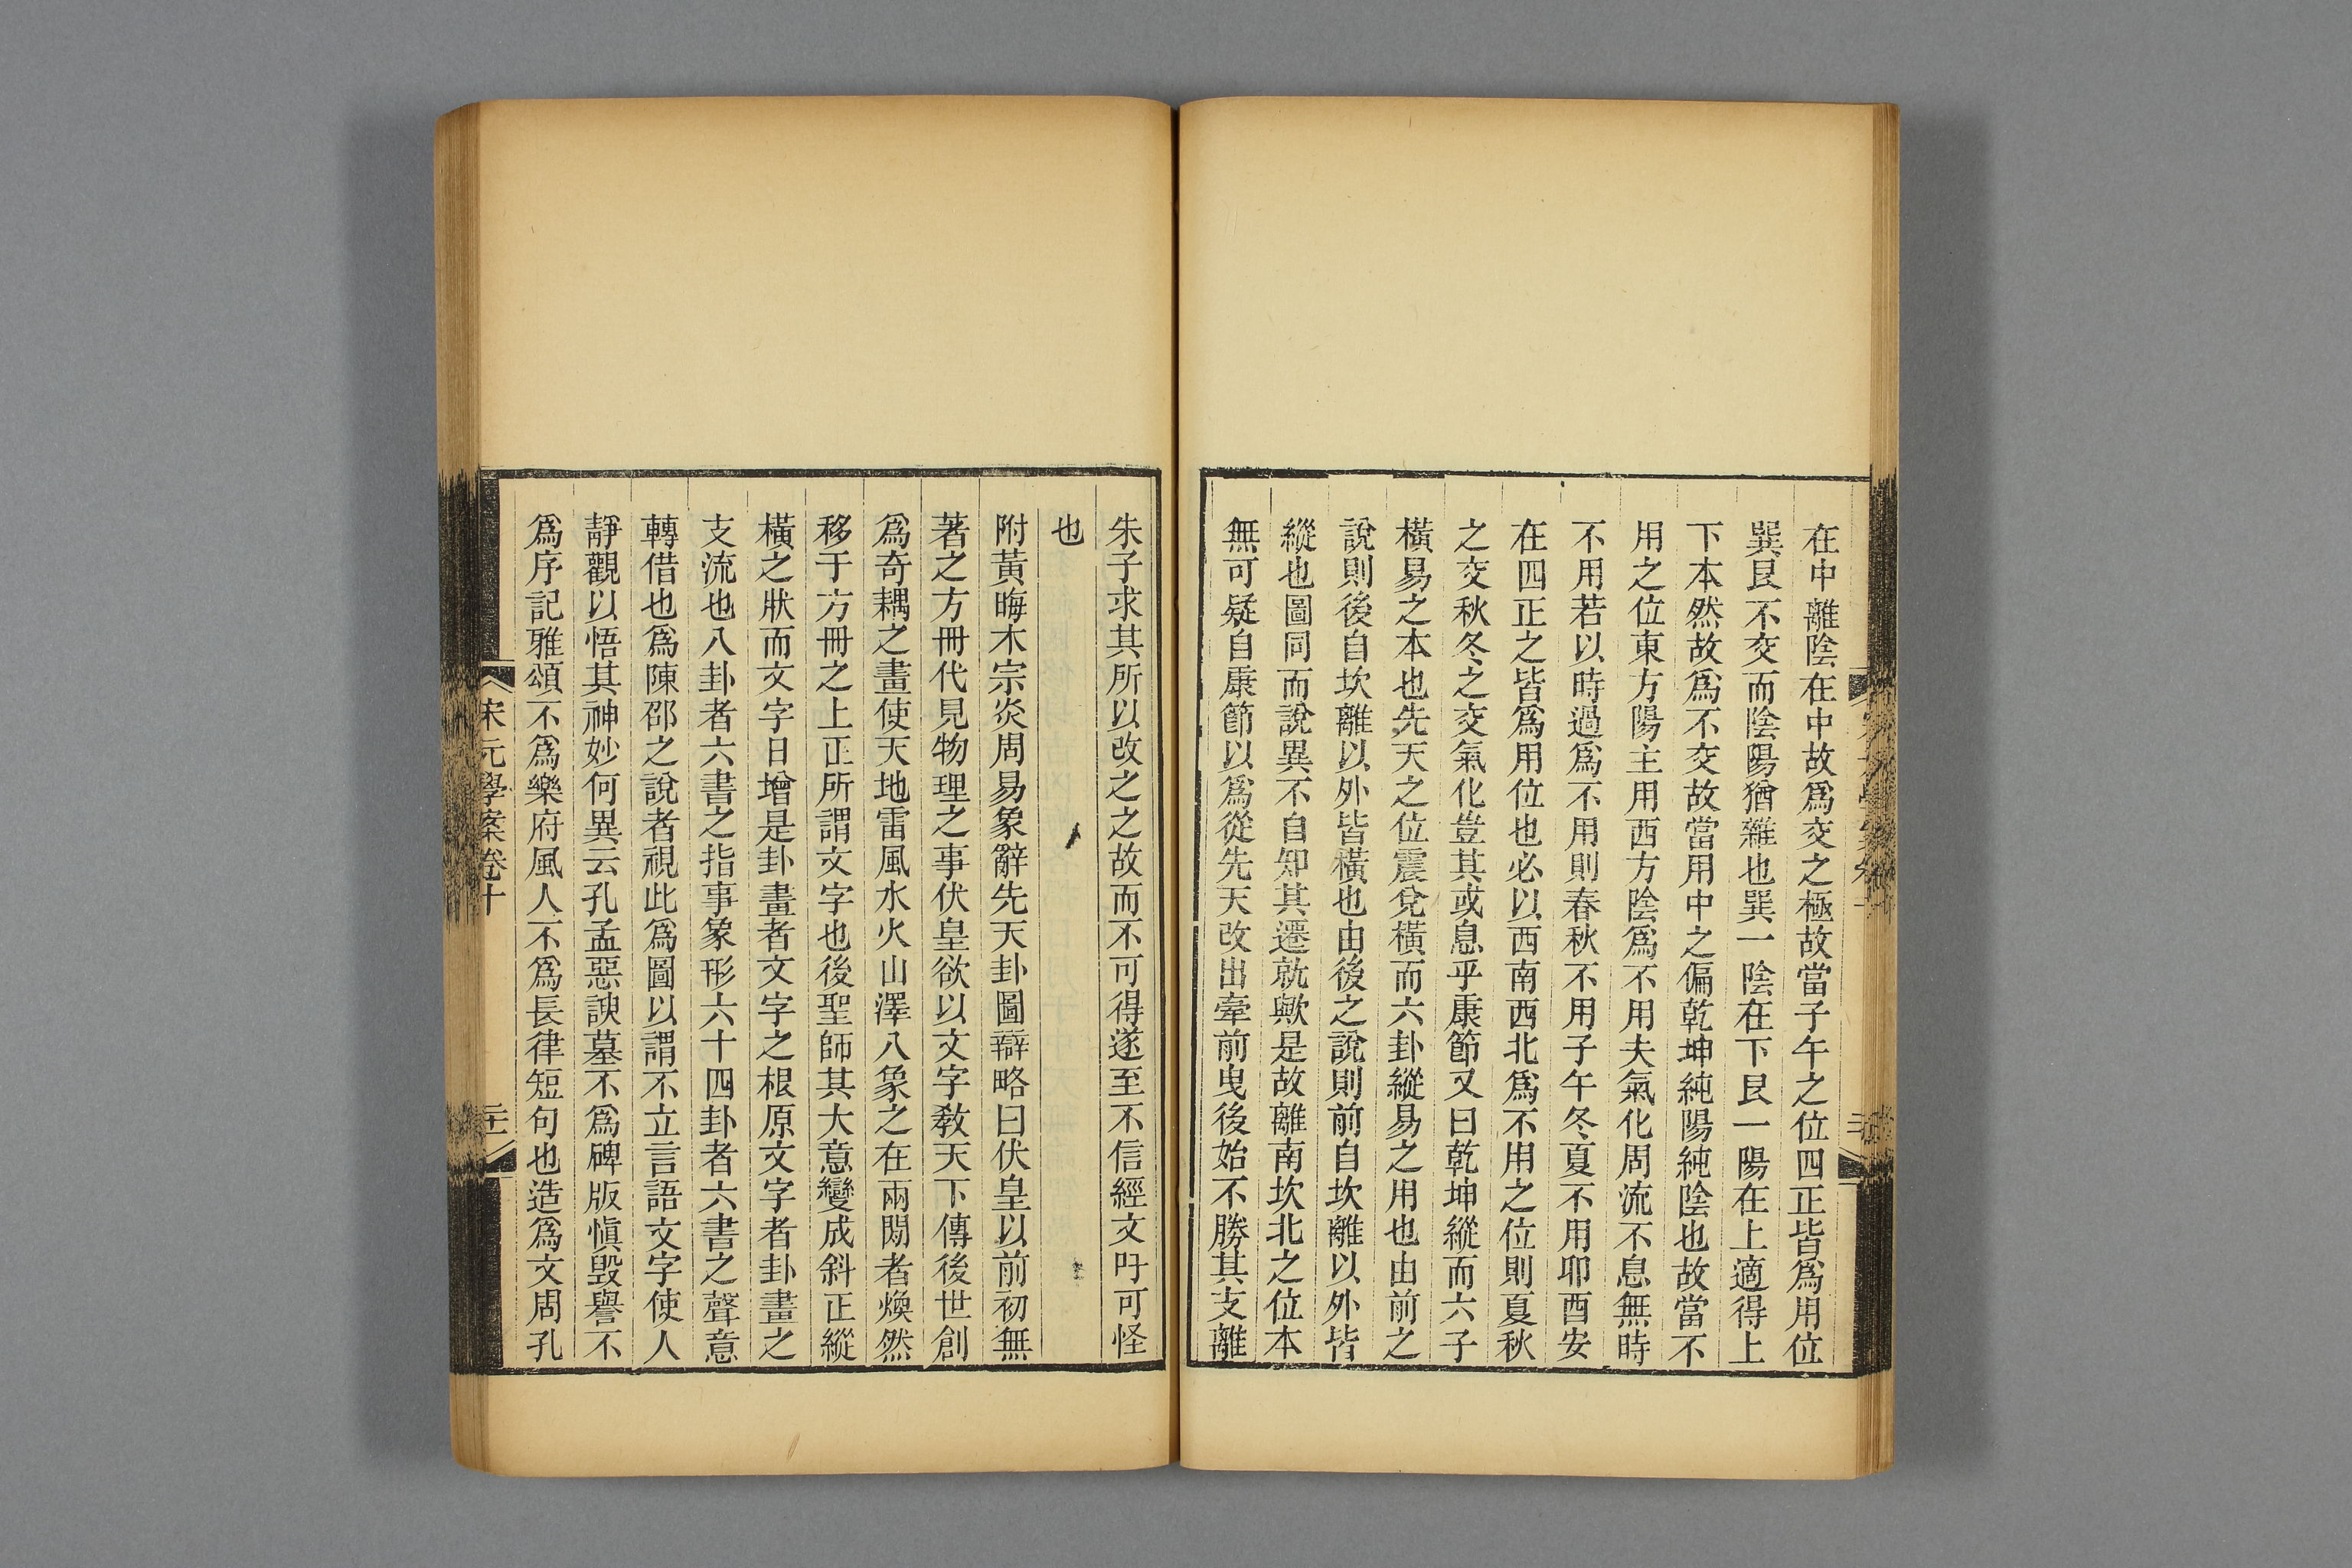 在中離陰在中故爲交之極故當子午之位四正皆爲用位
巽艮不交而陰陽猶雜也巽一陰在下艮一陽在上適得上
下本然故爲不交故當用中之偏乾坤純陽純陰也故當不
用之位東方陽主用西方陰爲不用夫氣化周流不息無時
不用若以時過爲不用則春秋不用子午冬夏不用卯酉安
在四正之皆爲用位也必以西南西北爲不用之位則夏秋
之交秋冬之交氣化豈其或息乎康節又曰乾坤縱而六子
橫易之本也先天之位震兌橫而六卦縱易之用也由前之
說則後自坎離以外皆橫也由後之說則前自坎離以外皆
縱也圖同而說異不自知其遷就歟是故離南坎北之位本
無可疑自康節以爲從先天改出牽前曳後始不勝其支離
朱子求其所以改之之故而不可得遂至不信經文吁可怪
也
附黃晦木宗炎周易象辭先天卦圖辯略曰伏皇以前初無
著之方冊代見物理之事伏皇欲以文字敎天下傳後世創
爲奇耦之畫使天地雷風水火山澤八象之在兩閒者煥然
移于方冊之上正所謂文字也後聖師其大意變成斜正縱
橫之狀而文字日增是卦畫者文字之根原文字者卦畫之
支流也八卦者六書之指事象形六十四卦者六書之聲意
轉借也爲陳邵之說者視此爲圖以謂不立言語文字使人
靜觀以悟其神妙何異云孔孟惡諛墓不爲碑版愼毀譽不
爲序記雅頌不爲樂府風人不爲長律短句也造爲文周孔
宋元學案卷十